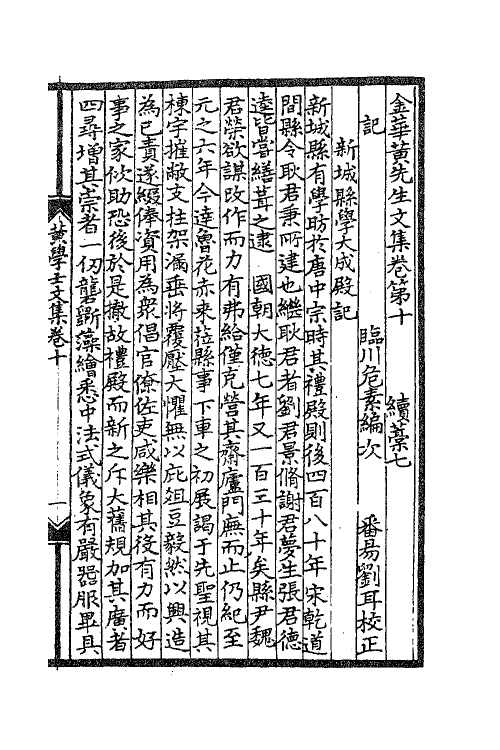 金華黃先生文集卷第十　　續藁七
記　　　　　　　臨川危素編次　　番昜劉耳校正
新城縣學大成殿記
新城縣有學昉於唐中宗時其禮殿則後四百八十年宋乾道
間縣令耿君秉所建也繼耿君者劉君景脩謝君夢生張君德
逵皆嘗繕葺之逮　國朝大德七年又一百三十年矣縣尹魏
君榮欲謀改作而力有弗給僅克營其齋廬門廡而止仍紀至
元之六年今達魯花赤來蒞縣事下車之初展謁于先聖視其
棟宇摧敝支柱架漏垂將覆壓大懼無以庇俎豆毅然以興造
為己責遂綴俸資用為衆倡官僚佐吏咸樂相其役有力而好
事之家佽助恐後於是撤故禮殿而新之斥大舊規加其廣者
四尋增其崇者一仞礱斵藻繪悉中法式儀象有嚴器服畢具
黃學士文集卷十　一